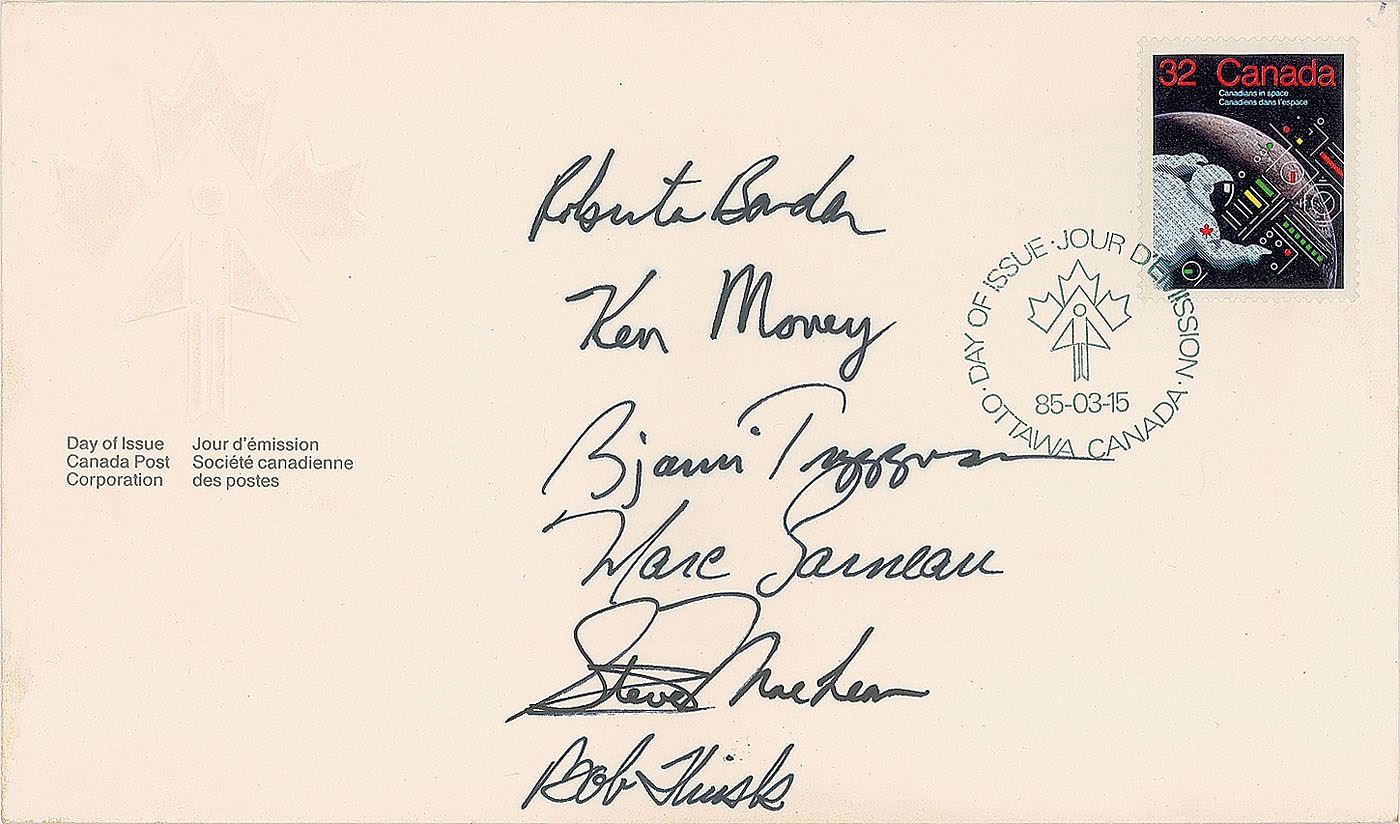 32 Canada
Canadians in space
Canadiens dans l'espace
Roberta Bondar
Ken Money
Bjarni Tryggvason
Marc Garneau
Steve MacLean
Bob Thirsk
DAY OF ISSUE · JOUR D'ÉMISSION · OTTAWA CANADA ·
85-03-15
Day of Issue Jour d'émission
Canada Post Société canadienne
Corporation des postes